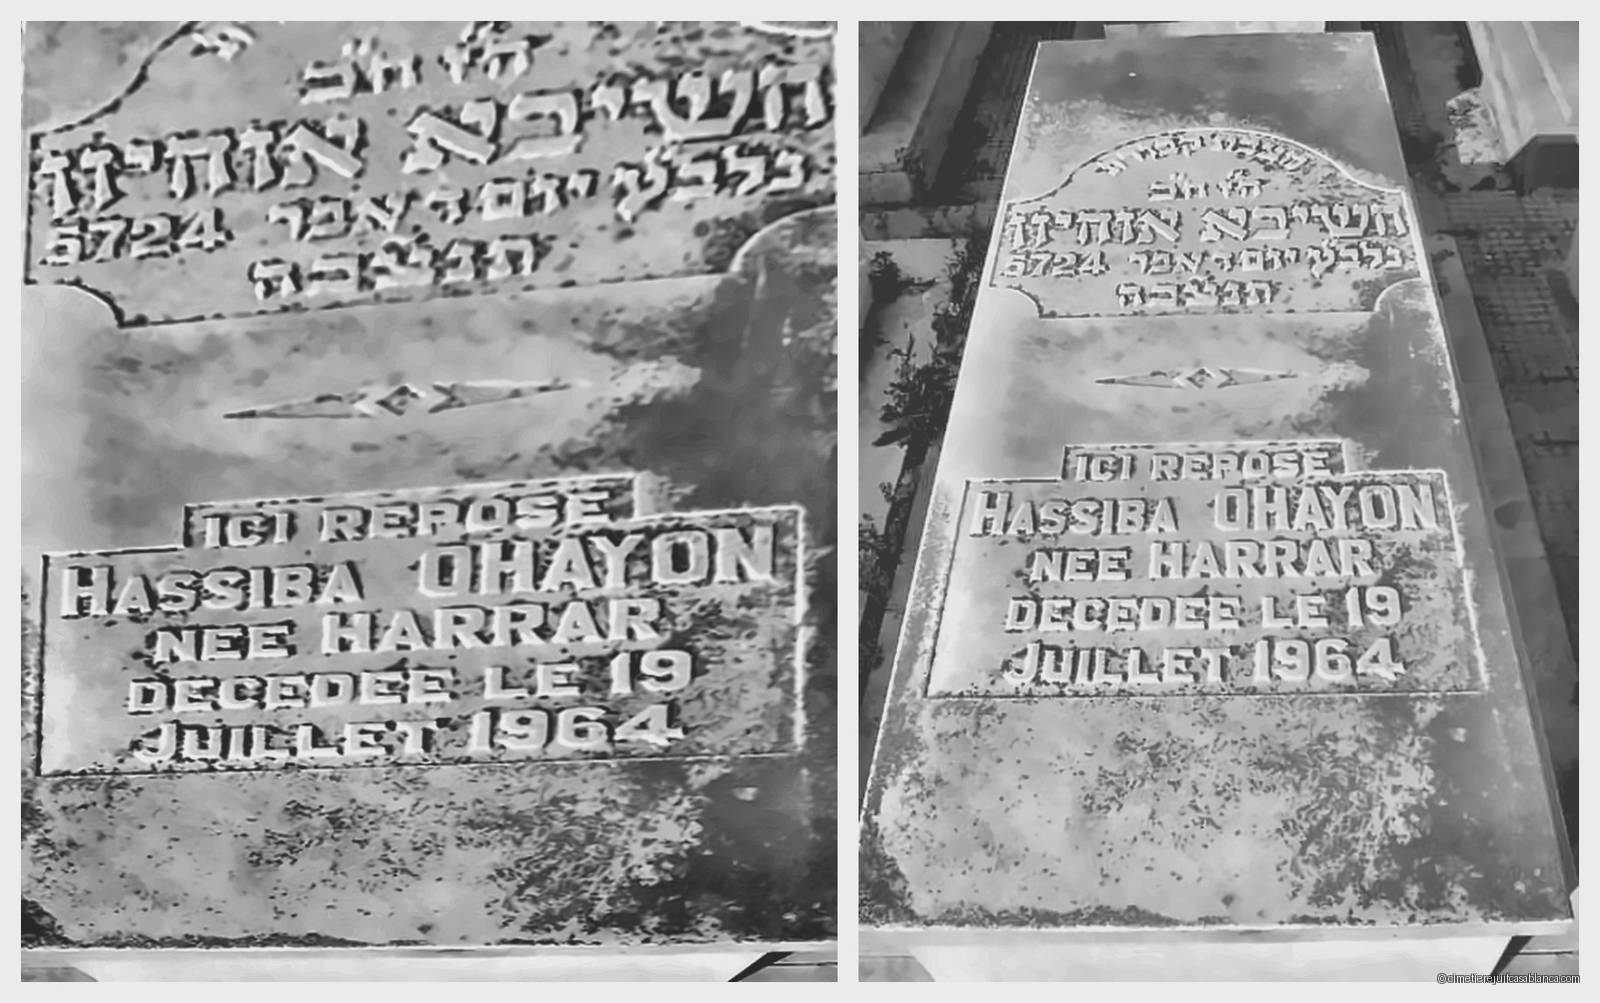 ה״ו ח״ב
חשיבא אוחיון
נלב״ע יום י׳ אב
5724
תנצבה
ICI REPOSE
HASSIBA OHAYON
NEE HARRAR
DECEDEE LE 19
JUILLET 1964
מצבת קבורת
ה״ו ח״ב
חשיבא אוחיון
נלב״ע יום י׳ אב
5724
תנצבה
ICI REPOSE
HASSIBA OHAYON
NEE HARRAR
DECEDEE LE 19
JUILLET 1964
©cimetierejuifcasablanca.com